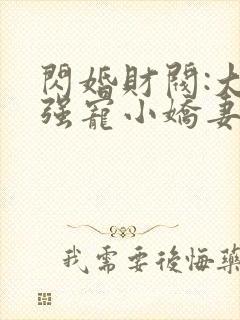 閃婚財閥:大
强寵小嬌妻
我需要後悔藥